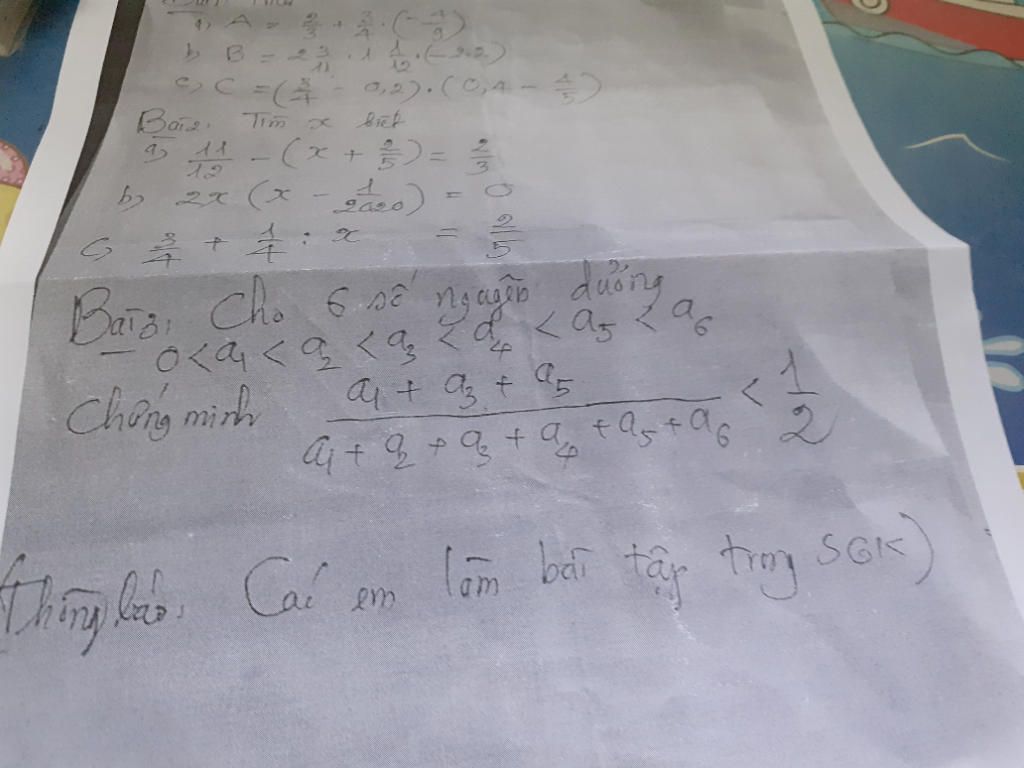 a) A = 2/3 + 3/4 . (-4/9)
b) B = 2 3/11 . 1 1/12 . (-2,2)
c) C = (3/4 - 0,2) . (0,4 - 4/5)
Bài 2. Tìm x biết
a) 11/12 - (x + 2/5) = 2/3
b) 2x (x - 1/2020) = 0
c) 3/4 + 1/4 : x = 2/5
Bài 3. Cho 6 số nguyên dương
0 < a₁ < a₂ < a₃ < a₄ < a₅ < a₆
Chứng minh (a₁ + a₃ + a₅)/(a₁ + a₂ + a₃ + a₄ + a₅ + a₆) < 1/2
Thông báo. Các em làm bài tập trong SGK)